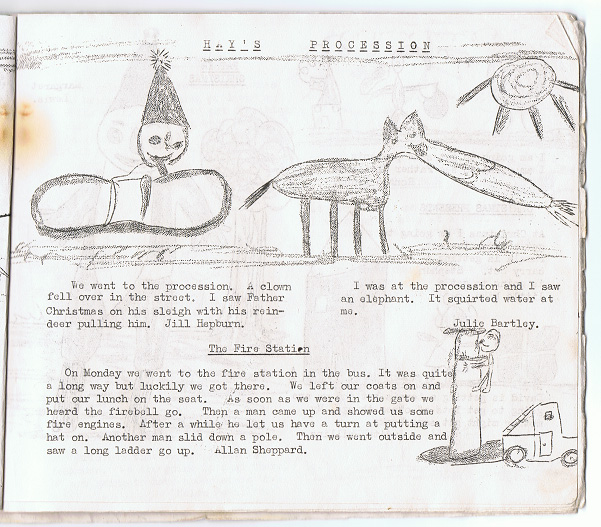 HAY'S PROCESSION
We went to the procession. A clown
fell over in the street. I saw Father
Christmas on his sleigh with his rein-
deer pulling him. Jill Hepburn.
I was at the procession and I saw
an elephant. It squirted water at
me.
Julie Bartley.
The Fire Station
On Monday we went to the fire station in the bus. It was quite
a long way but luckily we got there. We left our coats on and
put our lunch on the seat. As soon as we were in the gate we
heard the firebell go. Then a man came up and showed us some
fire engines. After a while he let us have a turn at putting a
hat on. Another man slid down a pole. Then we went outside and
saw a long ladder go up. Allan Sheppard.